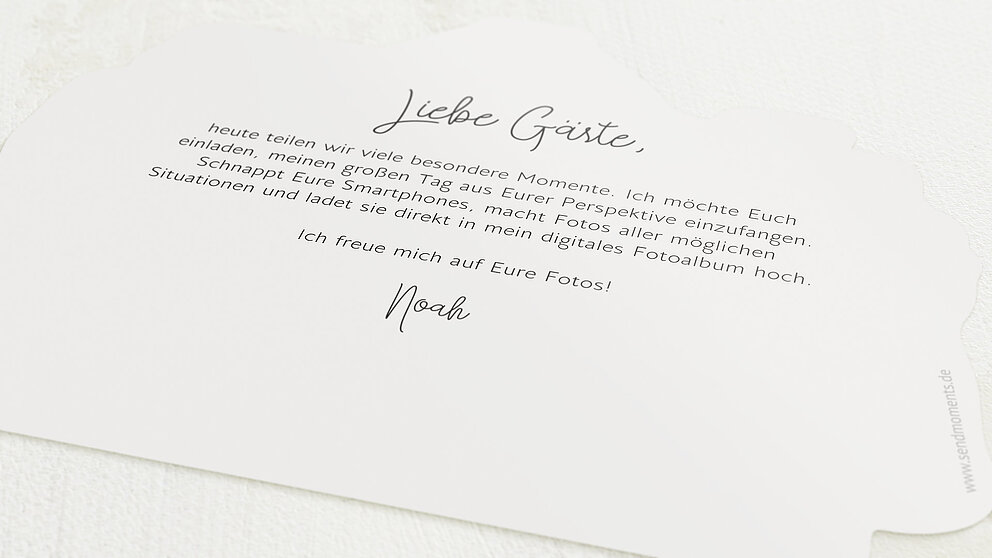 Liebe Gäste,
heute teilen wir viele besondere Momente. Ich möchte Euch
einladen, meinen großen Tag aus Eurer Perspektive einzufangen.
Schnappt Eure Smartphones, macht Fotos aller möglichen
Situationen und ladet sie direkt in mein digitales Fotoalbum hoch.
Ich freue mich auf Eure Fotos!
Noah
www.sendmoments.de